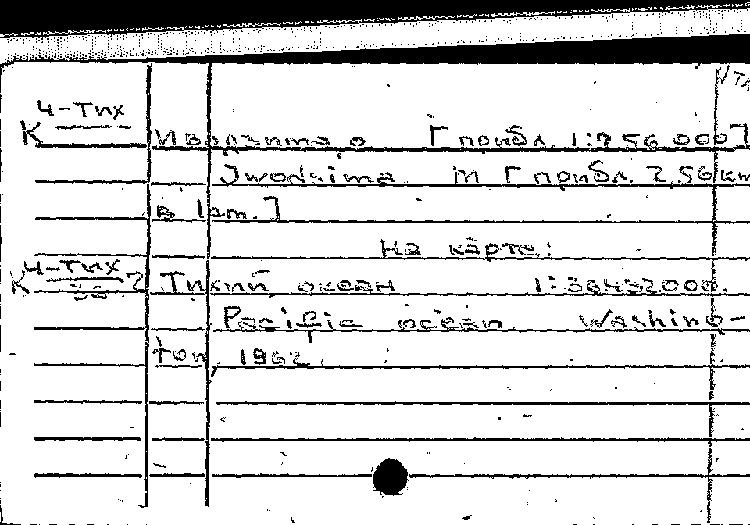 4-Тих
К Иводзима о [прибл. 1:256 000]
Jwodzima M [прибл. 2,56 km
в 1 cm.]
На карте:
К 4-Тих
Тихий океан 1:36432000.
Pacific ocean Washing-
ton, 1962.